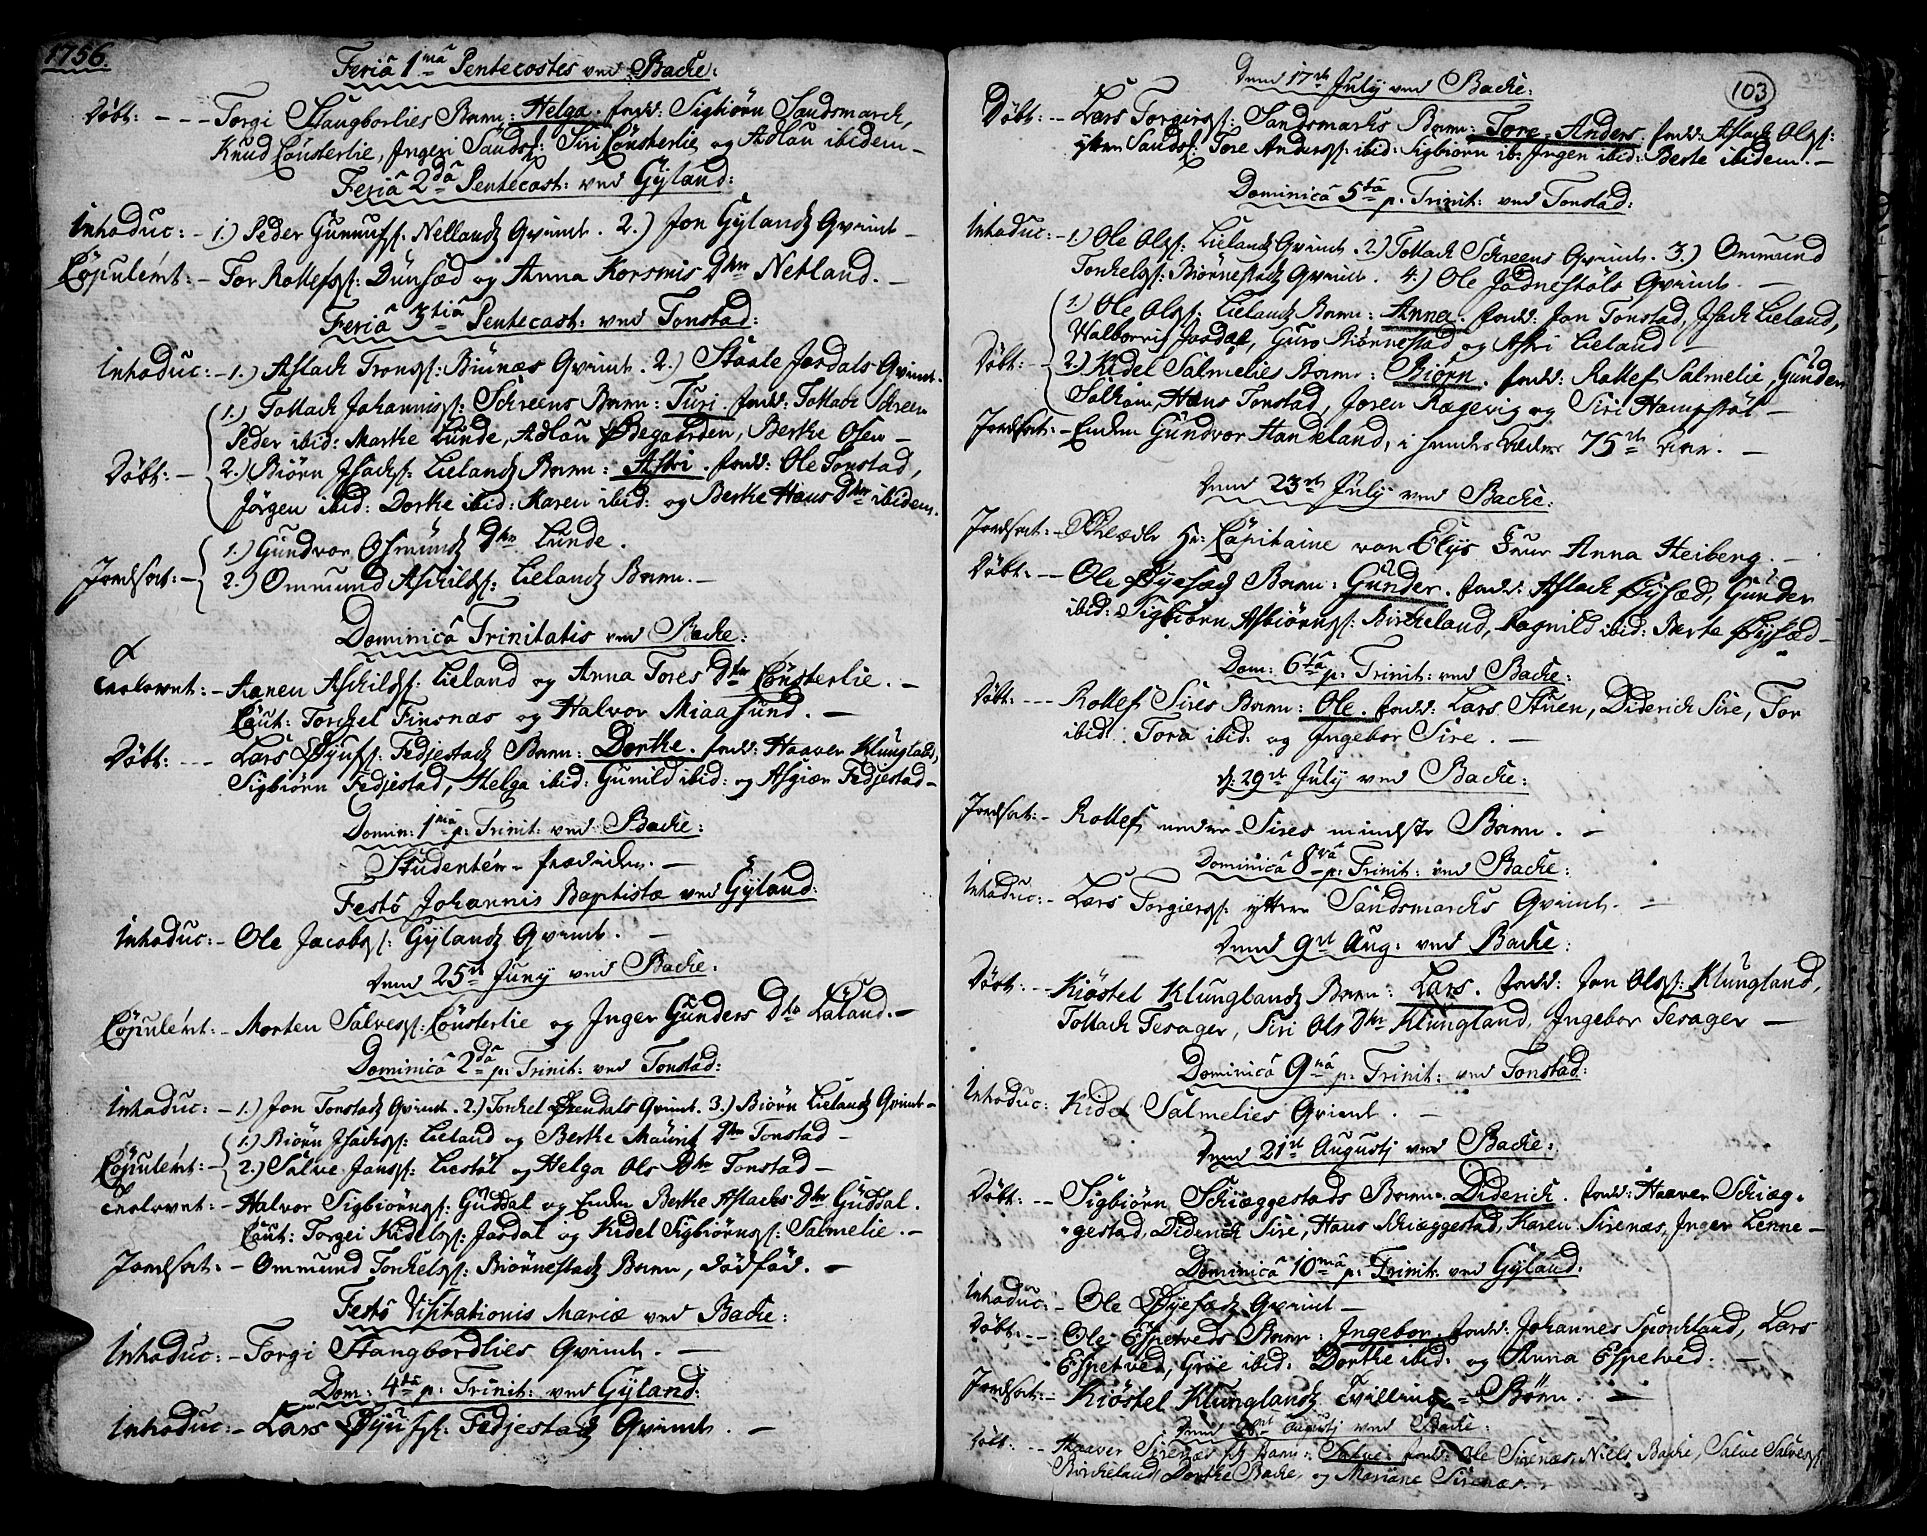 1756.
Feria 1ma Pentecostes ved Backe:
Döbt: - - - Torgi Stangborlies Barn: Helga. fadd: Sigbiörn Sandsmarck,
Knud Lönsterlie, Ingeri Sands: Siri Lönsterlie og Adlau ibidem -
Feria 2da Pentecost: ved Gÿland:
Introduc: - 1.) Peder Gunnufs: Nellandz Qvinde. 2.) Jon Gÿlandz Qvinde -
Copuleret: - Tor Rollefs: Dunsæd og Anna Korsmis Dtr Netland. -
Feria 3tia Pentecost: ved Tonstad:
Introduc: - 1.) Aslach Trons: Biunæs Qvinde. 2.) Staale Josdals Qvinde.
1.) Tollach Johanniss: Schreens Barn: Turi. fadd: Tollach Schreen
Peder ibid: Marthe Lunde, Adlau Øegaarden, Berthe Osen -
Döbt: - 2.) Biörn Isachs: Lielandz Barn: Astri. fadd: Ole Tonstad,
Jörgen ibid: Dorthe ibid: Karen ibid: og Berthe Hans Dtr ibidem.
1.) Gundvor Osmundz Dtr Lunde.
Jordfæst: - 2.) Ommund Aschilds: Lielandz Barn. -
Dominica Trinitatis ved Backe:
Trolovet: - Aanen Aschilds: Lieland og Anna Tores Dtr Lönsterlie. -
Caut: Torchel Finsnæs og Halvor Miaasund. -
Döbt: - - - Lars Øÿufs: Fedjestadz Barn: Dorthe. fadd: Haaver Klungland,
Sigbiörn Fedjestad, Helga ibid: Gunild ibid: og Asgiær Fedjestad -
Domin: 1ma p: Trinit: ved Backe:
Studenten prædiken. -
Festo Johannis Baptistæ ved Gÿland:
Introduc: - Ole Jacobs: Gÿlandz Qvinde. -
Dend 25de Junÿ ved Backe.
Copuleret: - Morten Salves: Lönsterlie og Inger Gunders Dtr Laland. -
Dominica 2da p: Trinit: ved Tonstad:
Introduc: - 1.) Jon Tonstadz Qvinde. 2.) Torkel Øxendals Qvinde. 3.) Biörn Lielandz Qvinde -
1.) Biörn Isachs: Lieland og Berthe Maurit Dtr Tonstad -
Copuleret: - 2.) Salve Jans: Liestöl og Helga Ols Dtr Tonstad -
Trolovet: - Halvor Sigbiörns: Guddal og Enken Berthe Aslachs Dtr Guddal.
Caut: Torgei Kidels: Josdal og Kidel Sigbiörns: Salmelie. -
Jordfæst: - Ommund Torkels: Biörnestadz Barn, dödföd. -
Festo Visitationis Mariæ ved Backe:
Introduc: - Torgi Stangbordlies Qvinde. -
Dom: 4ta p: Trinit: ved Gÿland:
Introduc: - Lars Øÿufs: Fedjestadz Qvinde. -
103
Dend 17de Julÿ ved Backe:
Döbt: - - Lars Torgiers: Sandsmarks Barn: Tore-Anders. fadd: Aslach Ols:
yttre Sands: Tore Anders: ibid: Sigbiörn ib: Ingen ibid: Berte ibidem. -
Dominica 5ta p: Trinit: ved Tonstad:
Introduc: - 1.) Ole Ols: Lielandz Qvinde. 2.) Tollach Schreens Qvinde. 3.) Ommund
Tonkels: Biörnestadz Qvinde. 4.) Ole Jödnestöls Qvinde. -
1.) Ole Ols: Lielandz Barn: Anna. fadd: Jon Tonstad, Isach Lieland,
Walborris Josdal, Guro Biörnestad og Astri Lieland -
Döbt: - 2.) Kidel Salmelies Barn: Biörn. fadd: Rollef Salmelie, Gunder
Solhom, Hans Tonstad, Joren Rægevig og Siri Hompstöl -
Jordfæst: - Enken Gundvor Handeland, i hendes Alders 75de Aar. -
Dend 23de Julÿ ved Backe:
Jordfæst: - Hr: Capitaine von Elÿs Frue Anna Heiberg. -
Döbt: - - Ole Øÿesædz Barn: Gunder. fadd: Aslach Øÿsæd, Gunder
ibid: Sigbiörn Asbiörns: Birckeland, Ragnild ibid: Berte Øÿsæd -
Dom: 6ta p: Trinit: ved Backe:
Döbt: - - - Rollef Sires Barn: Ole. fadd: Lars Stuen, Diderich Sire, Tor
ibid: Tora ibid: og Ingebor Sire. -
d: 29de Julÿ ved Backe:
Jordfæst: - Rollef nedre-Sires mindste Barn. -
Dominica 8va p: Trinit: ved Backe:
Introduc: - Lars Torgiers: yttre Sandsmarcks Qvinde. -
Dend 9de Aug: ved Backe:
Döbt: - - Kiöstel Klunglandz Barn: Lars. fadd: Jon Ols: Klungland,
Tollach Tesager, Siri Ols Dtr Klungland, Ingebor Tesager -
Dominica 9na p: Trinit: ved Tonstad:
Introduc: Kidel Salmelies Qvinde. -
Dend 21de Augusti ved Backe:
Döbt: - - Sigbiörn Schiæggestads Barn: Diderich. fadd: Haaver Schiæg-
gestad, Diderich Sire, Hans Schiæggestad, Karen Sirenæs, Inger Lenne -
Dominica 10ma p: Trinit: ved Gÿland:
Introduc: - Ole Øÿesædz Qvinde -
Döbt: - - Ole Espetveds Barn: Ingebor. fadd: Johannes Sponkland, Lars
Espetved, Gröe ibid: Dorthe ibid: og Anna Espetved. -
Jordfæst: - Kiöstel Klunglandz Tvillings-Börn. -
Dend 28de Augusti ved Backe:
Döbt: - - Haaver Sirenæs Barn: Salve. fadd: Ole Sirenæs, Niels Backe, Salve Salves:
Birckeland, Dorthe Backe, og Mariane Sirenæs. -